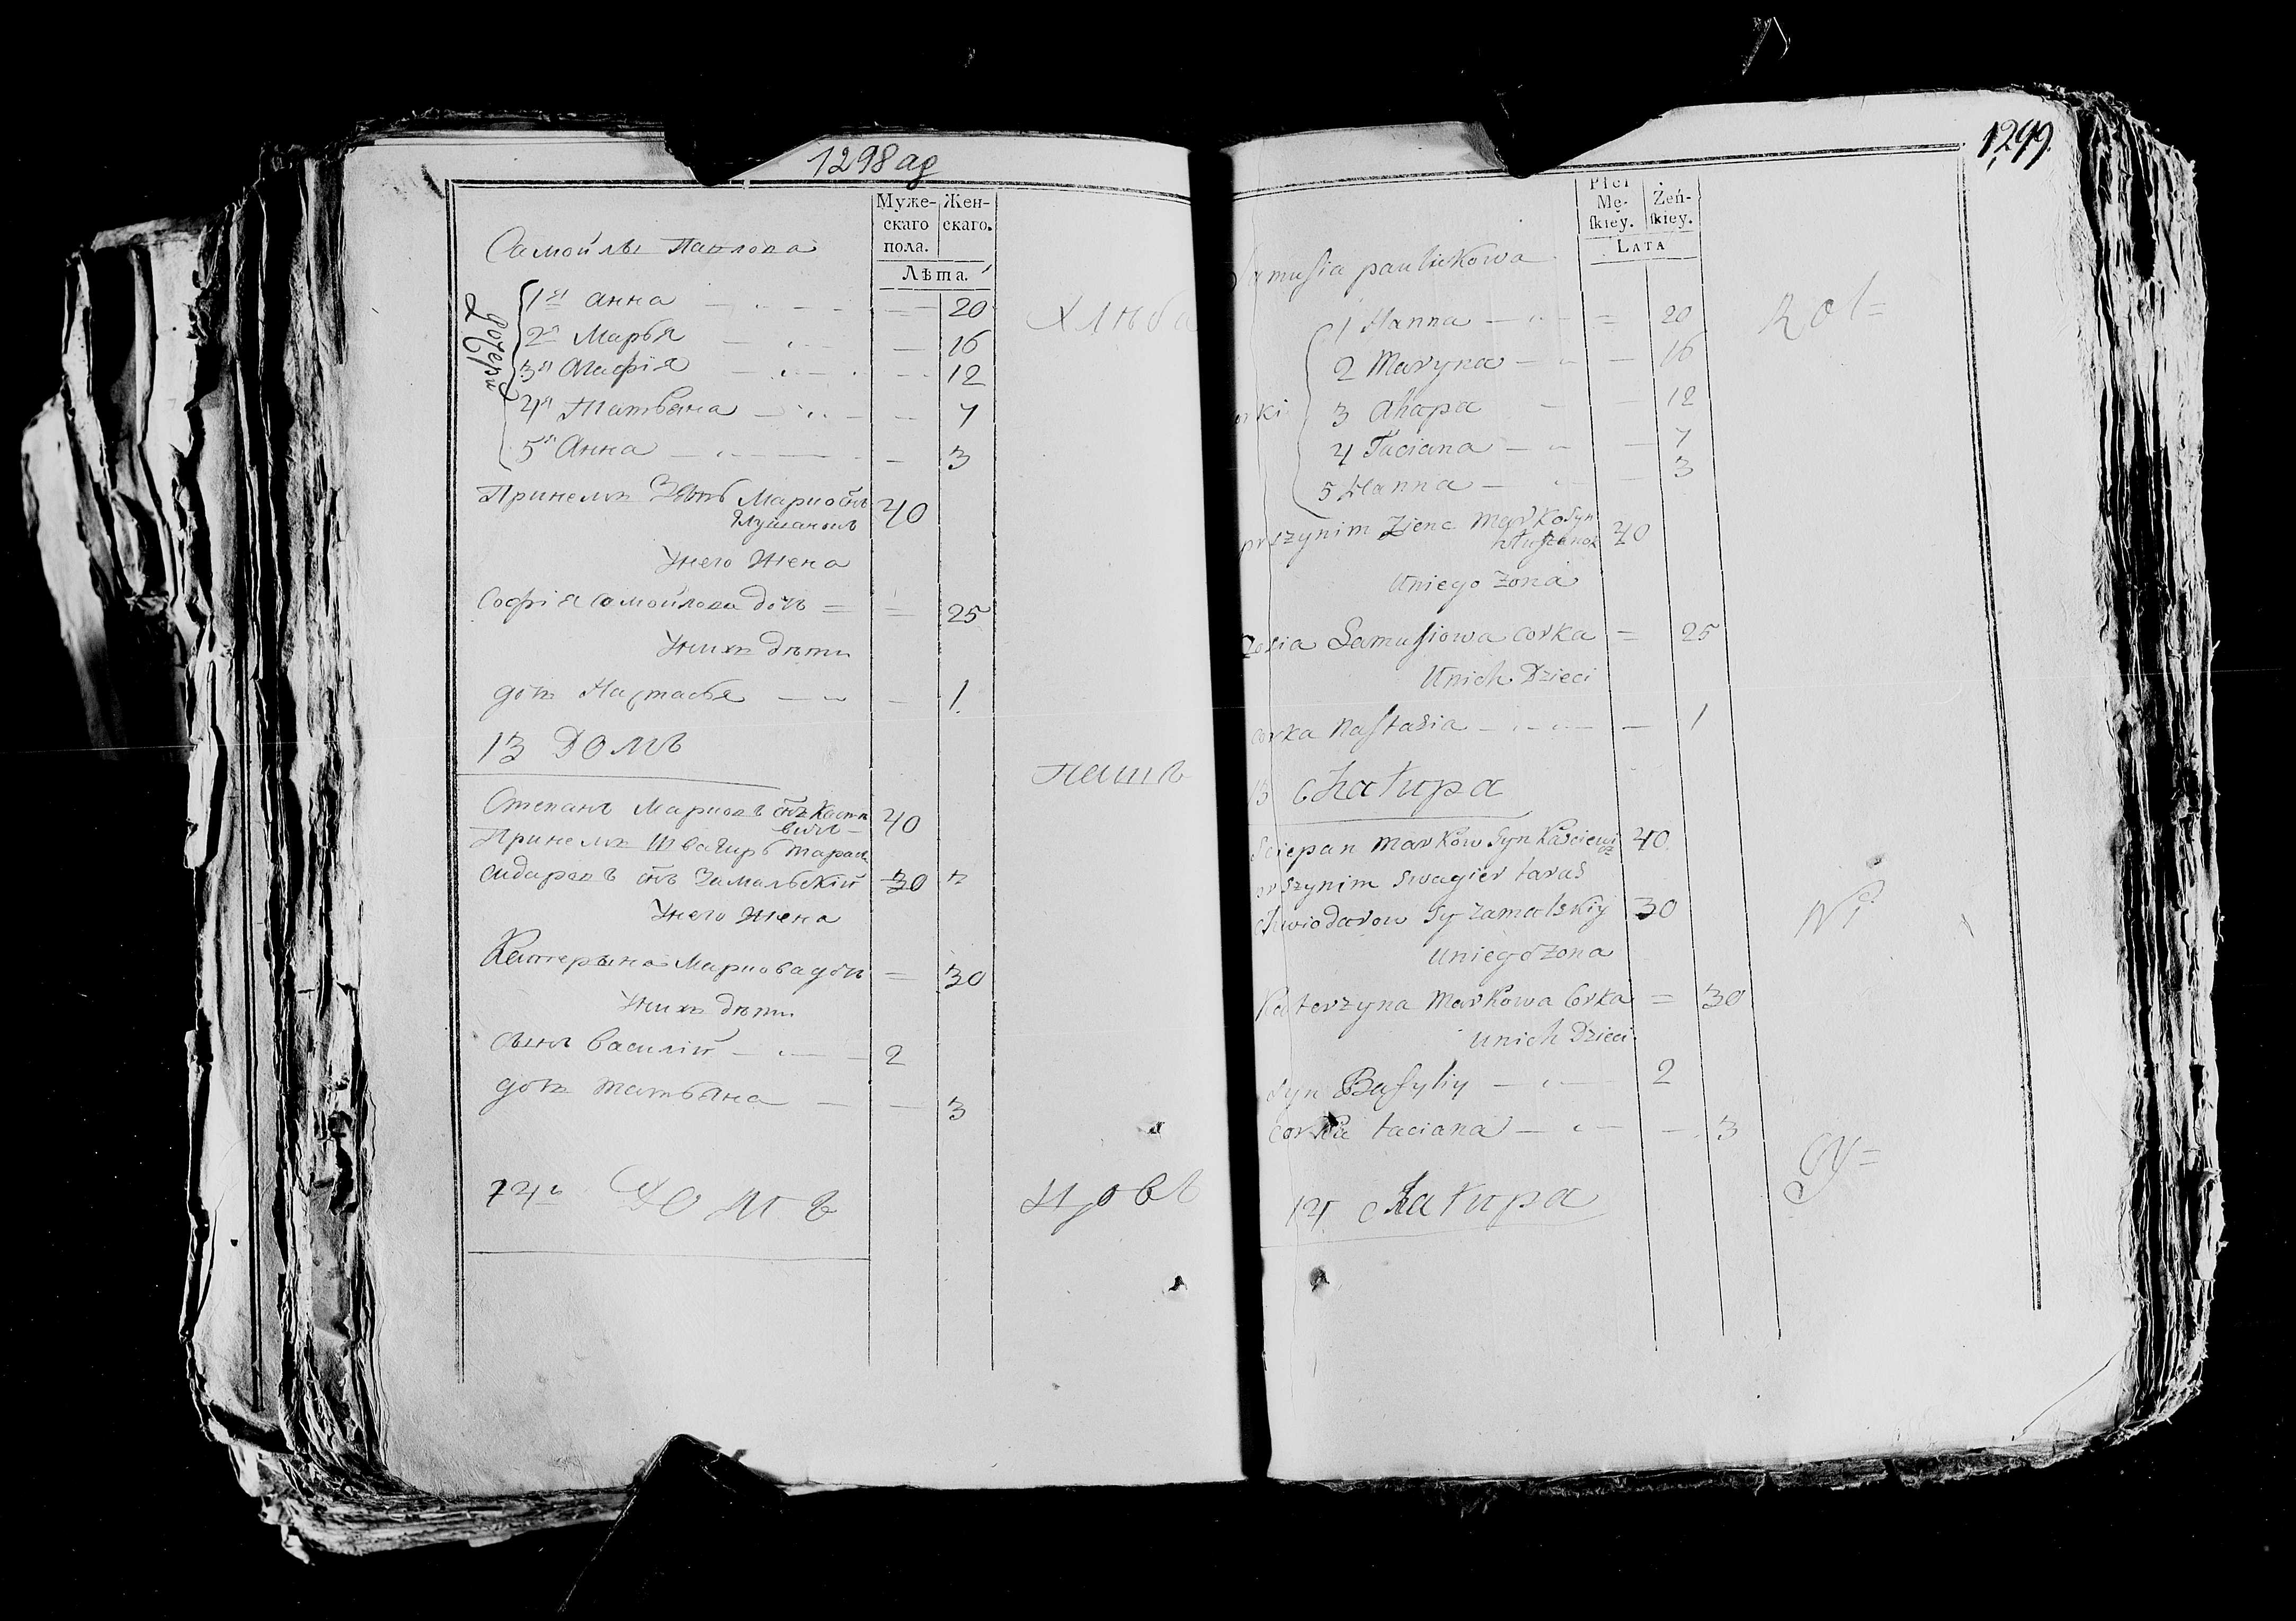 1298 ад
Муже-
скаго
пола.
Жен-
скаго.
Лѣта.
Самойлы Павлова
дочери
1я Анна 20
2я Марья 16
3я Агафія 12
4я Татьяна 7
5я Анна 3
Принемъ Зять Марко снъ 40
Глушанокъ
Унего Жена
Софія Самойлова дочь = = 25
Унихъ дѣти
дочь Настасья 1
13 Домъ
Степанъ Марковъ снъ Касте 40
вичъ
Принемъ Швагиръ Тарас
Сидаровъ снъ Замальскій 30
Унего Жена
Катерына Маркова дочь = 30
Унихъ дѣти
Сынъ Василій 2
дочь Татьяна 3
14ъ Домъ
Хлѣба
пашъ
1299
Płci
Mę-
ſkiey.
Żeń-
ſkiey.
Lata
Samuſia paulukowa
orki
1 Hanna = 20
2 Maryna 16
3 Ahapa 12
4 Taciana 7
5 Hanna 3
prszynim Zienc Marko Syn 40
hłuszanok
Uniego Zona
Zosia Samuſiowa Corka = 25
Unich Dzieci
corka Naſtasia 1
13 chałupa
Sciepan Markow Syn Kasciewi 40
cz
prszynim Swagier taras
chwiodarow Sy Zamalskiy 30
Uniego Zona
Katerzyna Markowa Corka = 30
Unich Dzieci
Syn Baſyliy 2
Corka taciana 3
14 chałupa
Rol=
Ni